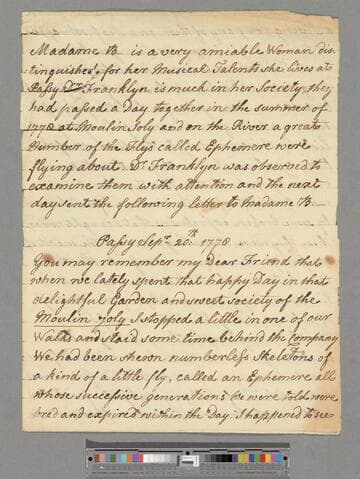 Madame B. is a very amiable Woman dis-
tinguished for her Musical Talents she lives at
Passy Dr. Franklyn is much in her Society, they
had passed a Day together in the summer of
1778 at Moulin Joly and on the River a great
Number of the Flys called Ephemere were
flying about. Dr. Franklyn was observed to
examine them with attention and the next
day sent the following letter to Madame B.
Passy Sepr. 20th. 1778
You may remember my Dear Friend that
when we lately spent that happy Day in that
delightful Garden and sweet society of the
Moulin Joly I stopped a little in one of our
Walks and staid some time behind the Company
We had been shewn numberless Skelatons of
a kind of a little fly, called an Ephemere all
whose successive generations we were told were
bred and expired within the Day. I happened to see